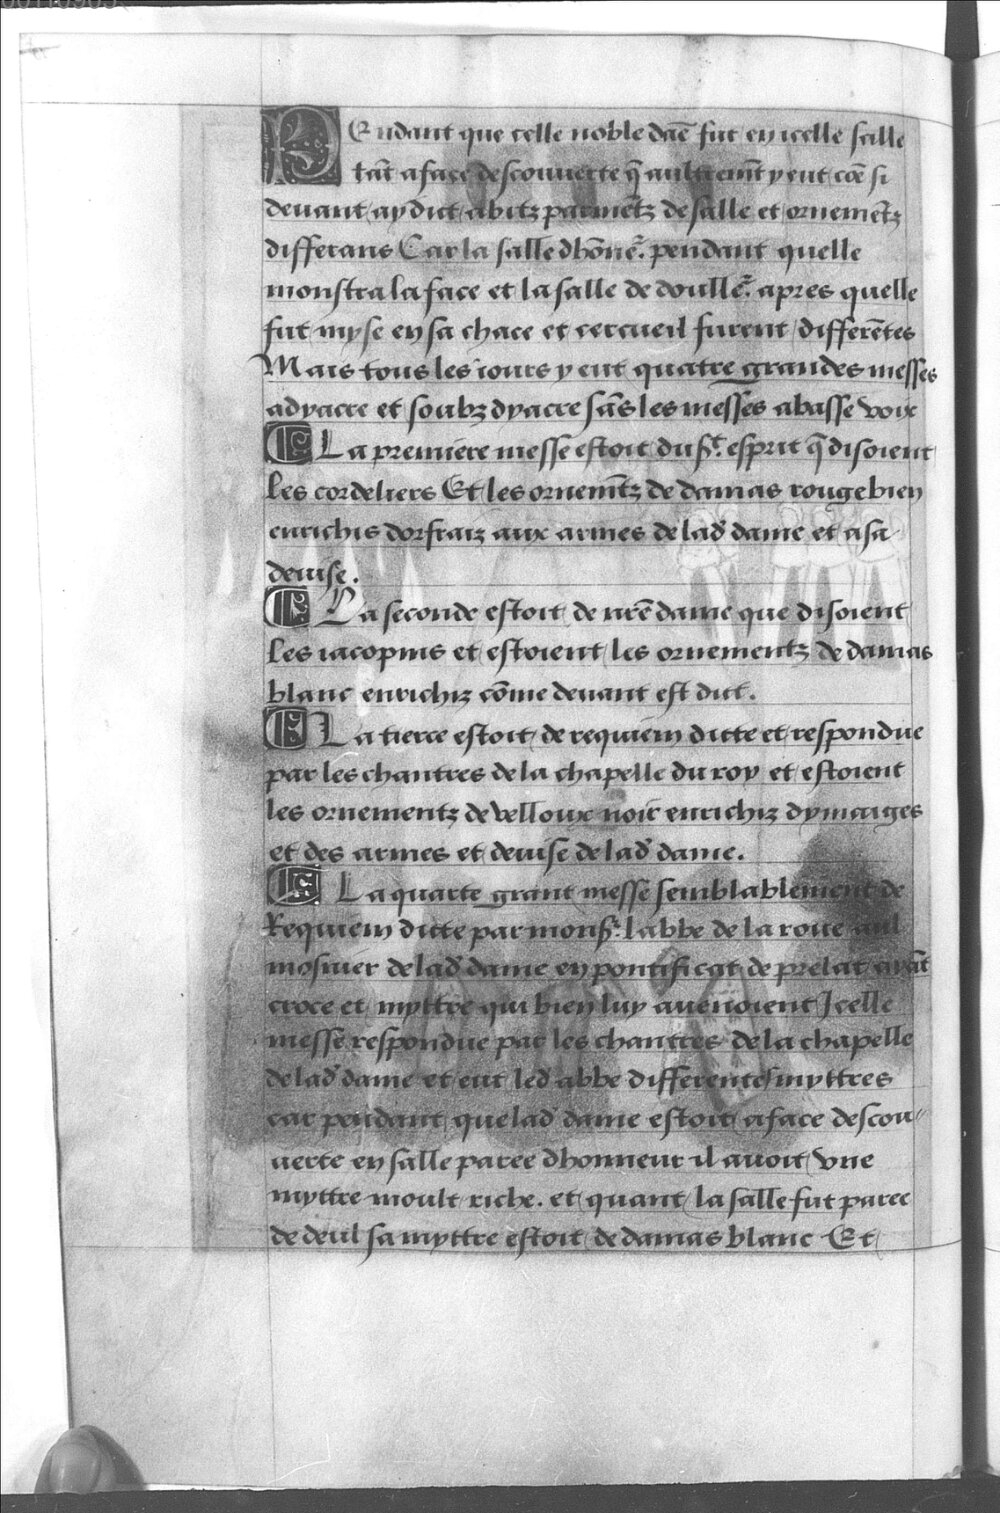 PEndant que celle noble dāe fut en icelle salle
tāt a face descouuerte q̄ aultremt̄ y eut cōe si
deuant ay dict abitz paremēts de salle et ornemēts
differans Car la salle dhōne᷑. pendant quelle
monstra la face et la salle de doulle᷑. apres quelle
fut myse en sa chace et cercueil furent differētes
Mais tous les iours y eut quatre grandes messes
a dyacre et soubz dyacre sās les messes a basse voix
La premiere messe estoit du st. esprit q̄ disoient
les cordeliers Et les ornemt̄z de damas rouge bien
enrichis dorfraiz aux armes de lad dame et a sa
deuise.
La seconde estoit de nr̄e dame que disoient
les iacopins et estoient les ornementz de damas
blanc enrichiz cōme deuant est dict.
La tierce estoit de requiem dicte et respondue
par les chantres de la chapelle du roy et estoient
les ornementz de velloux noir enrichiz dymaiges
et des armes et deuise de lad dame.
La quarte grant messe semblablement de
Requiem dicte par monsr. labbe de la roue aul
mosnier de lad dame en pontificat de prelat ayāt
croce et myttre qui bien luy auenoient Icelle
messe respondue par les chantres de la chapelle
de lad dame et eut led abbe differentes myttres
car pendant que lad dame estoit a face descou-
uerte en salle paree dhonneur il auoit vne
myttre moult riche. et quant la salle fut paree
de deul sa myttre estoit de damas blanc Et